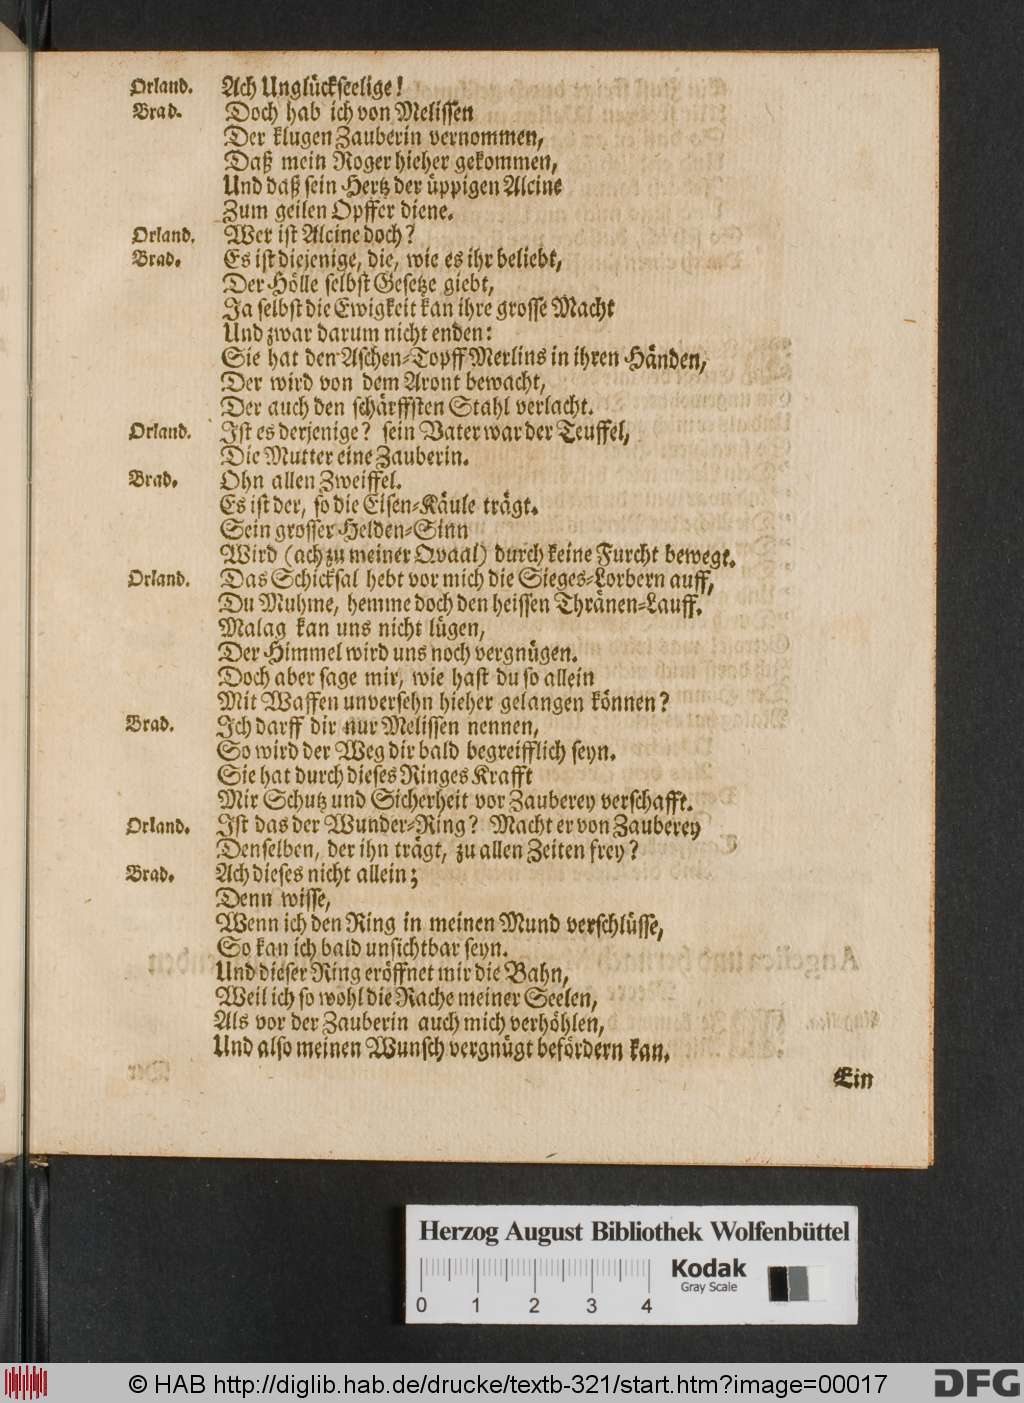 Orland. Ach Unglückseelige!
Brad. Doch hab ich von Melissen
Der klugen Zauberin vernommen,
Daß mein Roger hieher gekommen,
Und daß sein Hertz der üppigen Alcine
Zum geilen Opffer diene.
Orland. Wer ist Alcine doch?
Brad. Es ist diejenige, die, wie es ihr beliebt,
Der Hölle selbst Gesetze giebt,
Ja selbst die Ewigkeit kan ihre grosse Macht
Und zwar darum nicht enden:
Sie hat den Aschen-Topff Merlins in ihren Händen,
Der wird von dem Aront bewacht,
Der auch den schärffsten Stahl verlacht.
Orland. Ist es derjenige? sein Vater war der Teuffel,
Die Mutter eine Zauberin.
Brad. Ohn allen Zweiffel.
Es ist der, so die Eisen-Käule trägt.
Sein grosser Helden-Sinn
Wird (ach zu meiner Qvaal) durch keine Furcht bewegt.
Orland. Das Schicksal hebt vor mich die Sieges-Lorbern auff,
Du Muhme, hemme doch den heissen Thränen-Lauff.
Malag kan uns nicht lügen,
Der Himmel wird uns noch vergnügen.
Doch aber sage mir, wie hast du so allein
Mit Waffen unversehn hieher gelangen können?
Brad. Ich darff dir nur Melissen nennen,
So wird der Weg dir bald begreifflich seyn.
Sie hat durch dieses Ringes Krafft
Mir Schutz und Sicherheit vor Zauberey verschafft.
Orland. Ist das der Wunder-Ring? Macht er von Zauberey
Denselben, der ihn trägt, zu allen Zeiten frey?
Brad. Ach dieses nicht allein;
Denn wisse,
Wenn ich den Ring in meinen Mund verschlüsse,
So kan ich bald unsichtbar seyn.
Und dieser Ring eröffnet mir die Bahn,
Weil ich so wohl die Rache meiner Seelen,
Als vor der Zauberin auch mich verhöhlen,
Und also meinen Wunsch vergnügt befördern kan.
Ein
Herzog August Bibliothek Wolfenbüttel
Kodak
Gray Scale
0 1 2 3 4
© HAB http://diglib.hab.de/drucke/textb-321/start.htm?image=00017
DFG